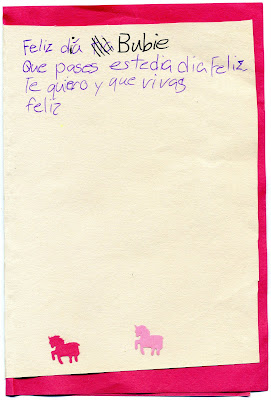 Feliz día Bubie
Que pases estedia dia Feliz
Te quiero y que vivas
feliz